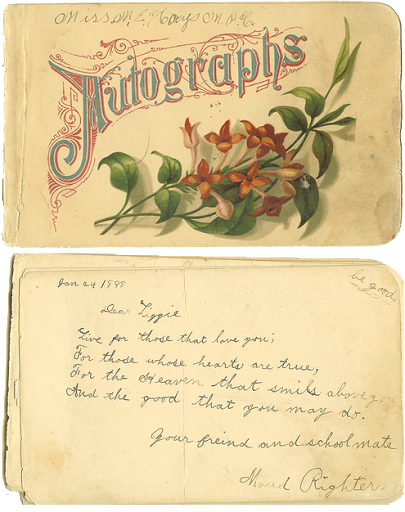 Miss M. L. Hays M. P. C.
Autographs
Jan 24 1898
be good
Dear Lizzie
Live for those that love you;
For those whose hearts are true,
For the Heaven that smils above you
And the good that you may do.
Your freind and schoolmate
Maud Righter